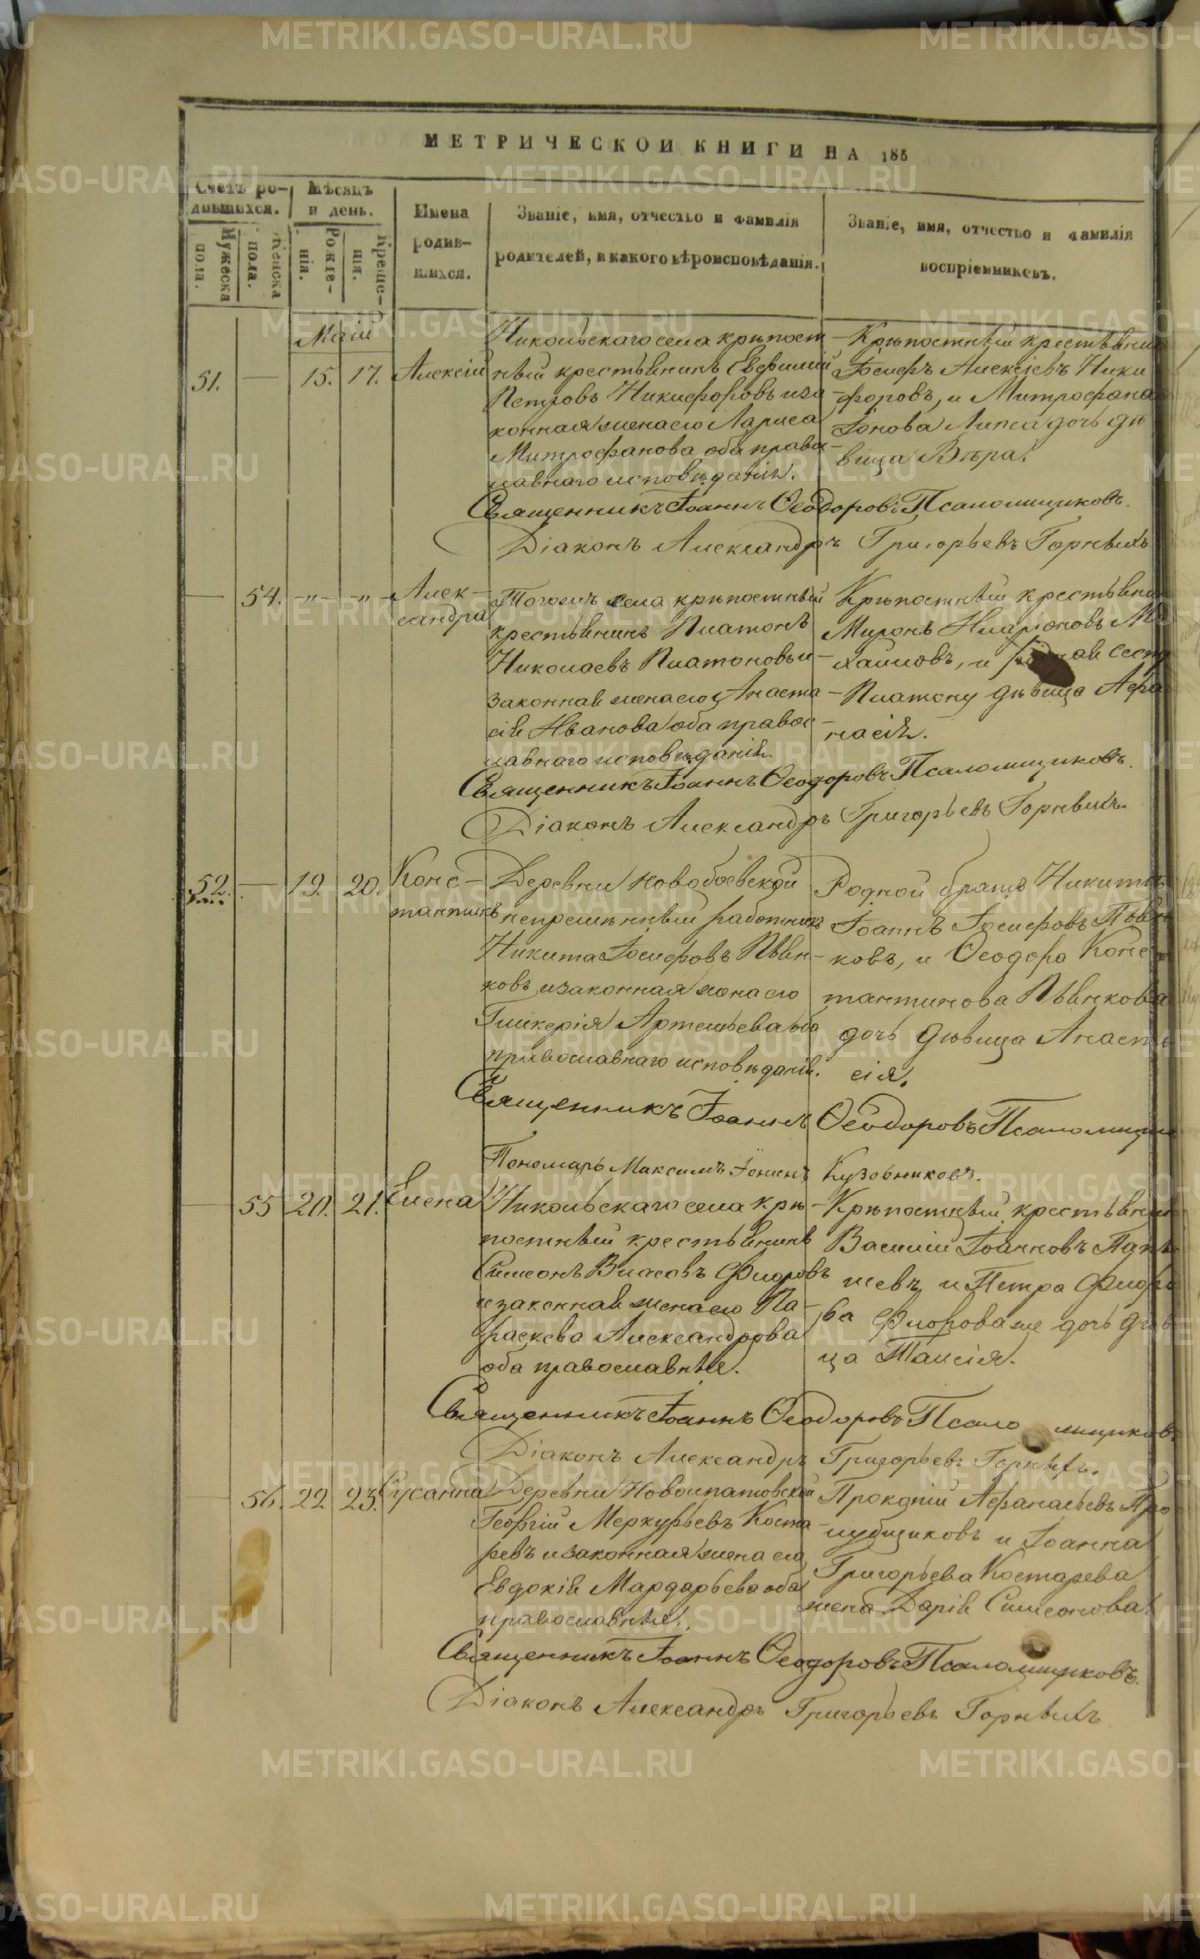 МЕТРИЧЕСКОЙ КНИГИ НА 185
Счетъ ро-
дившихся.
Мѣсяцъ
и день.
Имена
родив-
шихся.
Званіе, имя, отчество и фамилія
родителей, и какого вѣроисповѣданія.
Званіе, имя, отчество и фамилія
воспріемниковъ.
Мужеска
пола.
Женска
пола.
Рожде-
нія.
Креще-
нія.
Маій
51. — 15. 17. Алексій
Никольскаго села крѣпост-
ный крестьянинъ Евфимій
Петровъ Никифоровъ и за-
конная жена его Лариса
Митрофанова оба право-
славнаго исповѣданія.
Крѣпостный крестьянин
Іосифъ Алексіевъ Ники
форовъ, и Митрофана
Іонова Липса дочь дѣ
вица Вѣра.
Священникъ Іоаннъ Ѳеодоровъ Псаломщиковъ.
Діаконъ Александръ Григорьевъ Горныхъ
— 54. -"- -"- Алек-
сандра
Тогожъ села крѣпостный
крестьянинъ Платонъ
Николаевъ Платоновъ и
законная жена его Анаста-
сія Иванова оба правос-
лавнаго исповѣданія.
Крѣпостный крестьянин
Миронъ Иларіоновъ Ми
хаиловъ, и родная сест
Платону дѣвица Афа
насія.
Священникъ Іоаннъ Ѳеодоровъ Псаломщиковъ.
Діаконъ Александръ Григорьевъ Горныхъ.
52. — 19. 20. Конс-
тантинъ
Деревни Новобоевской
непремѣнный работникъ
Никита Іосифовъ Пьян-
ковъ и законная жена его
Гликерія Артемьева оба
православнаго исповѣданія.
Родной братъ Никиты
Іоаннъ Іосифовъ Пьян
ковъ, и Ѳеодора Конс
тантинова Пьянкова
дочь дѣвица Анаста
сія.
Священникъ Іоаннъ Ѳеодоровъ Псаломщик
Пономарь Максимъ Іонинъ Кузовниковъ.
— 55 20. 21. Елена
Никольскаго села крѣ-
постный крестьянинъ
Симеонъ Власовъ Флоровъ
и законная жена его Па-
раскева Александрова
оба православные.
Крѣпостный крестьянин
Василій Іоанновъ
шевъ, и Петра Флоро
ва Флорова же дочь дѣви
ца Таисія.
Священникъ Іоаннъ Ѳеодоровъ Псаломщиковъ
Діаконъ Александръ Григорьевъ Горныхъ.
— 56. 22 23. Сусанна
Деревни Новоипатовской
Георгій Меркурьевъ Коста-
ревъ и законная жена его
Евдокія Мардарьева оба
православные.
Прокопій Афанасьевъ Про
лубщиковъ и Іоанна
Григорьева Костарева
жена Дарія Симеонова.
Священникъ Іоаннъ Ѳеодоровъ Псаломщиковъ.
Діаконъ Александръ Григорьевъ Горныхъ
METRIKI.GASO-URAL.RU